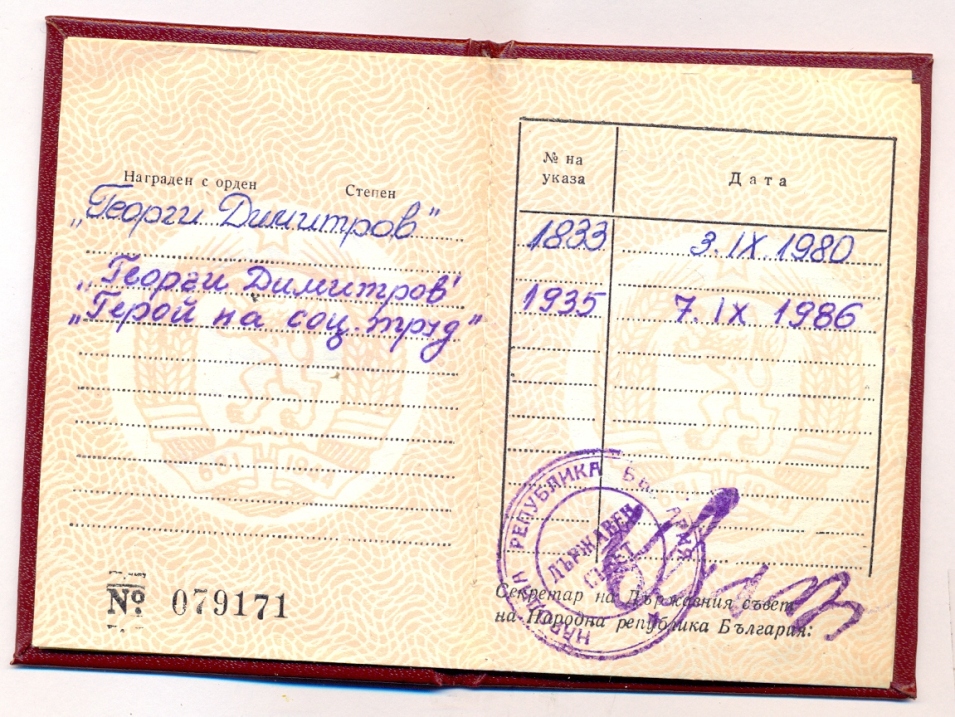 Награден с орден Степен
„Георги Димитров"
„Георги Димитров"
„Герой на соц. труд"
№ 079171
№ на указа Дата
1833 3. IX. 1980
1935 7. IX 1986
НАРОДНА РЕПУБЛИКА БЪЛГАРИЯ
ДЪРЖАВЕН
СЪВЕТ
Секретар на Държавния съвет
на Народна република България: